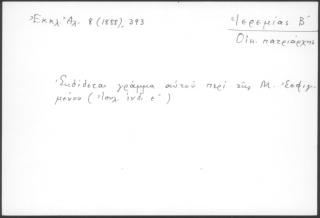 Ἐκκλ Ἀλ. 8 (1888), 393
Ἱερεμίας Β΄
Οἰκ. πατριάρχης
Ἐκδίδεται γράμμα αὐτοῦ περὶ τῆς Μ. Ἐσφιγ-
μένου (Ἰουλ. ἰνδ. ε΄)